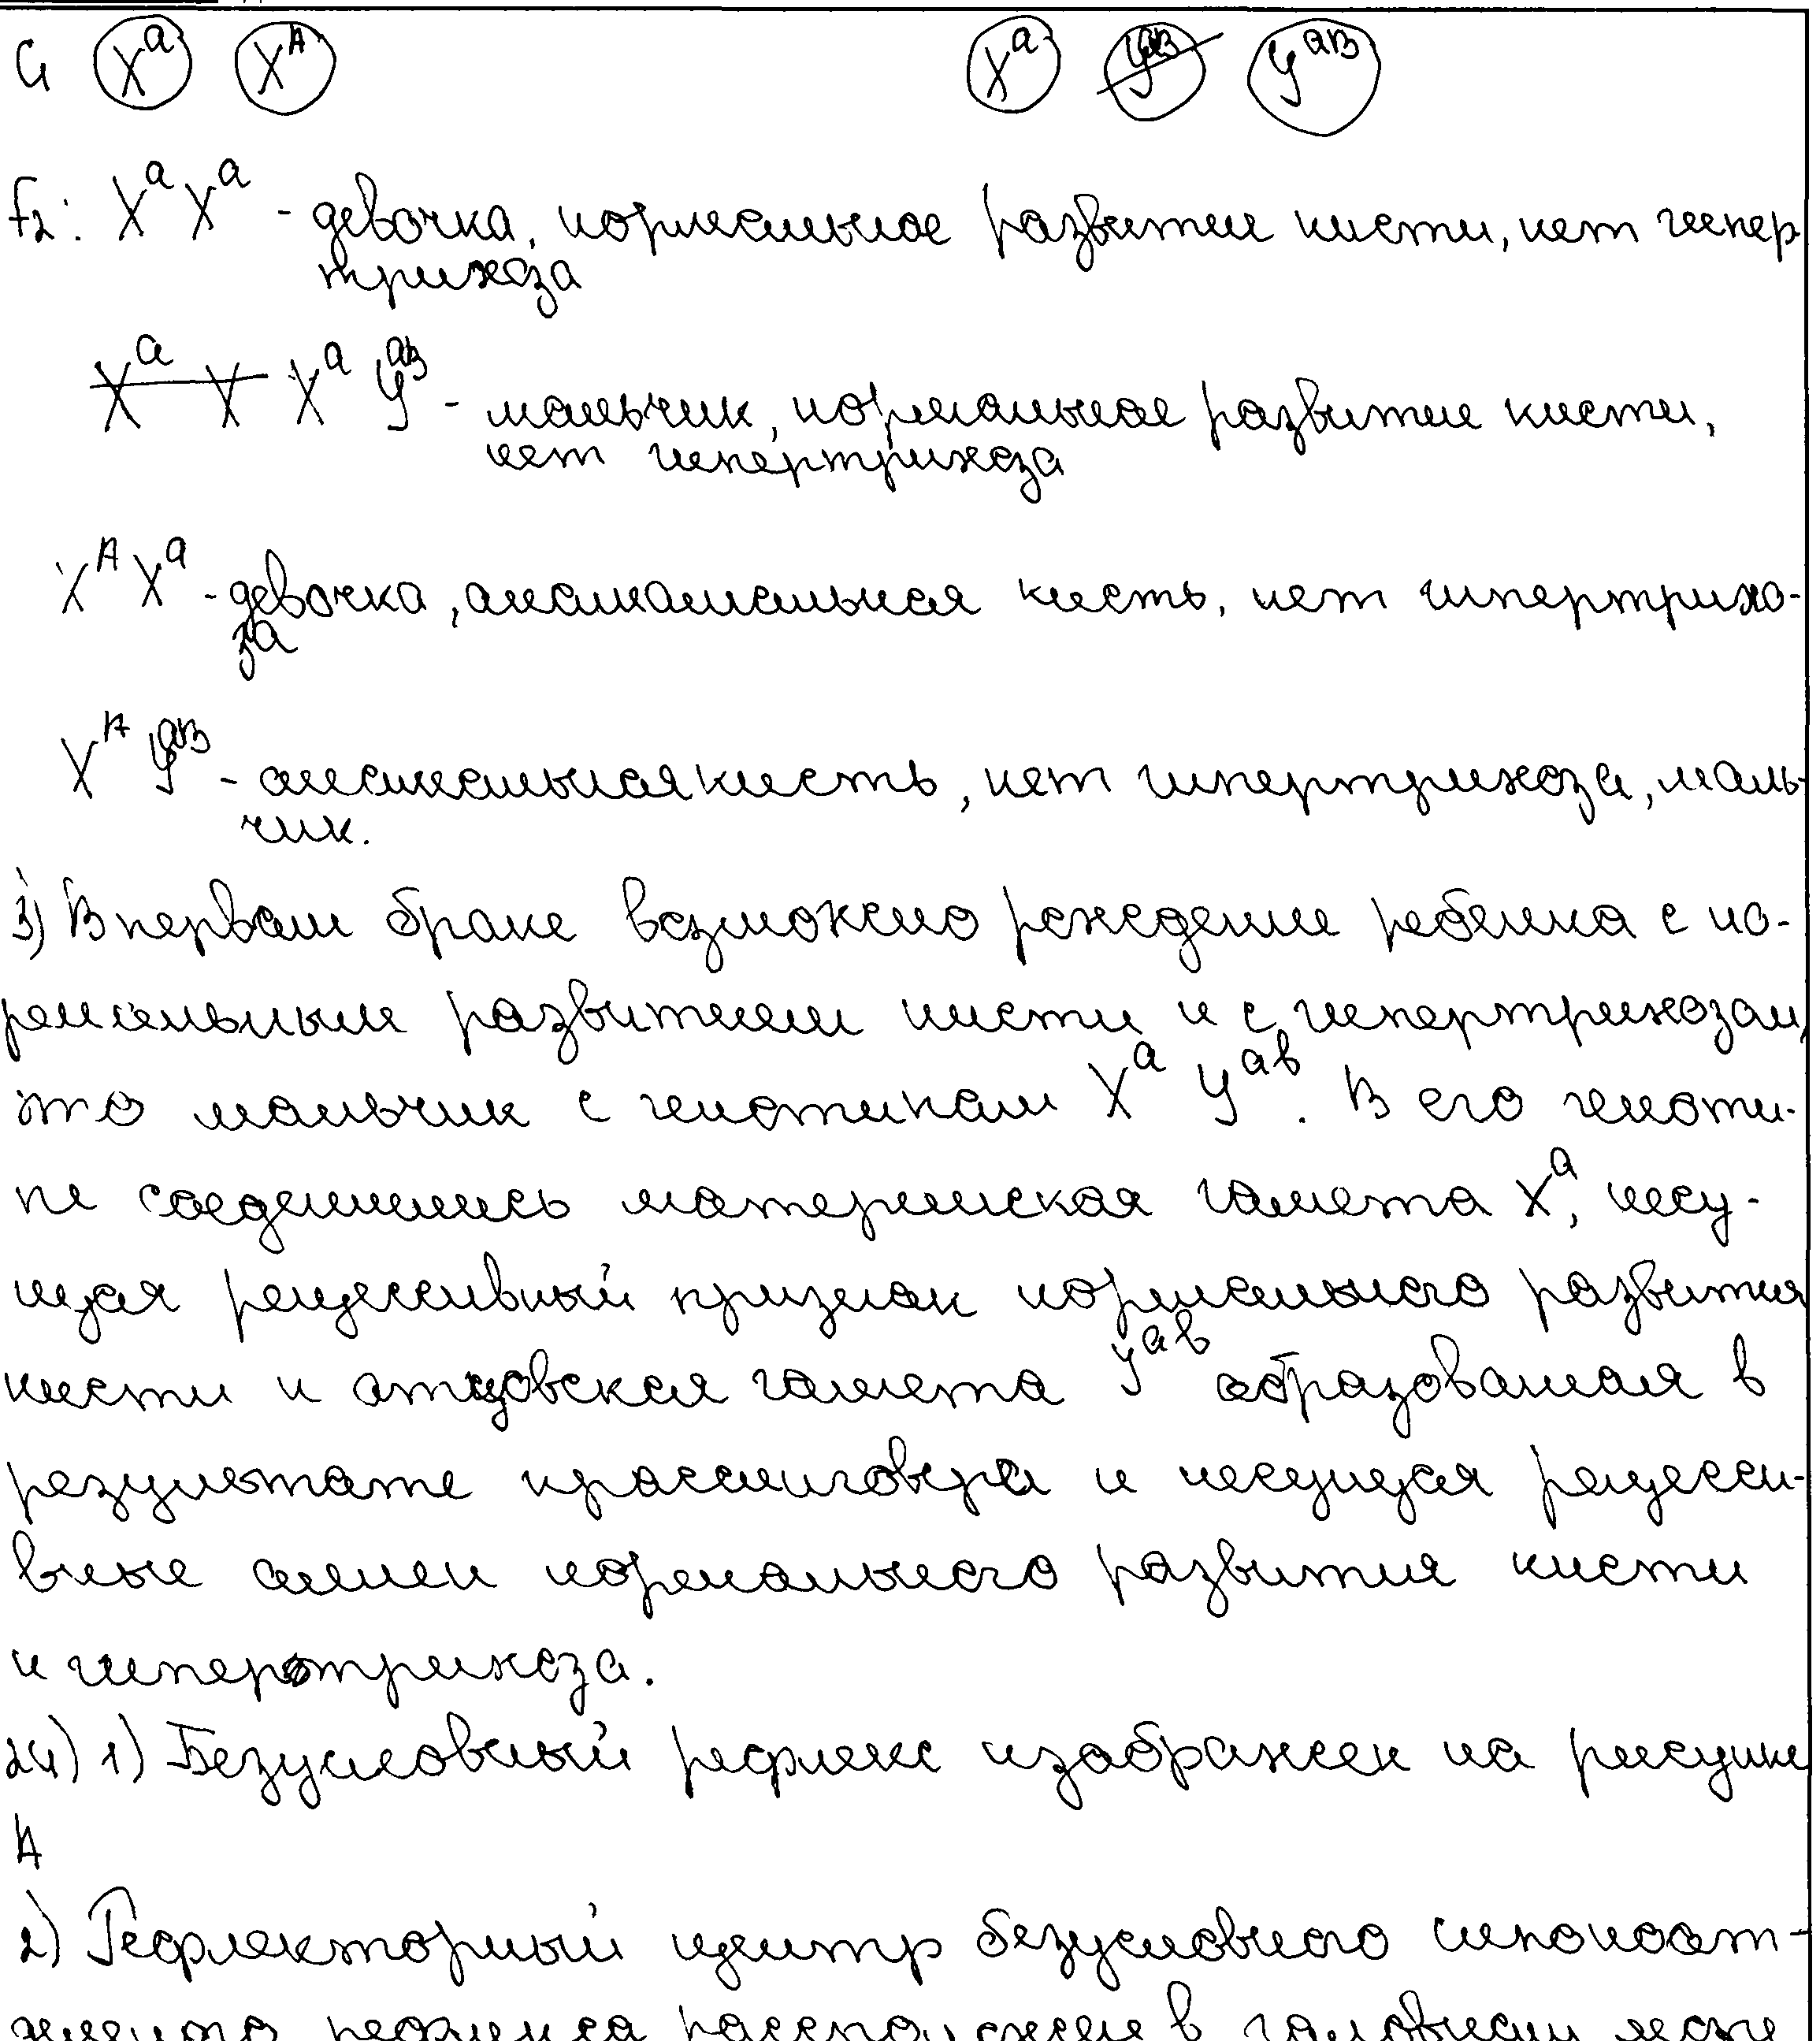 G X^a X^A X^a Y^aB Y^aB
F2: X^a X^a - девочка, нормальное развитие кисти, нет гипер
трихоза
X^a X X^a Y^aB - мальчик, нормальное развитие кисти,
нет гипертрихоза
X^A X^a - девочка, кисть, нет гипертрихо-
за
X^A Y^aB - кисть, нет гипертрихоза, маль-
чик.
3) В первом браке возможно рождение ребенка с но-
рмальным развитием кисти и с гипертрихозом,
это мальчик с генотипом X^a Y^ab. В его геноти-
пе соединились материнская гамета X^a, несу-
щая рецессивный признак нормального развития
кисти и отцовская гамета Y^ab образованая в
результате кроссинговера и несущая рецесси-
вные аллели нормального развития кисти
и гипертрихоза.
24) 1) Безусловный рефлекс изображен на рисунке
А
2) Рефлекторный центр безусловного слюноот-
рефлекса расположен в головном мозге